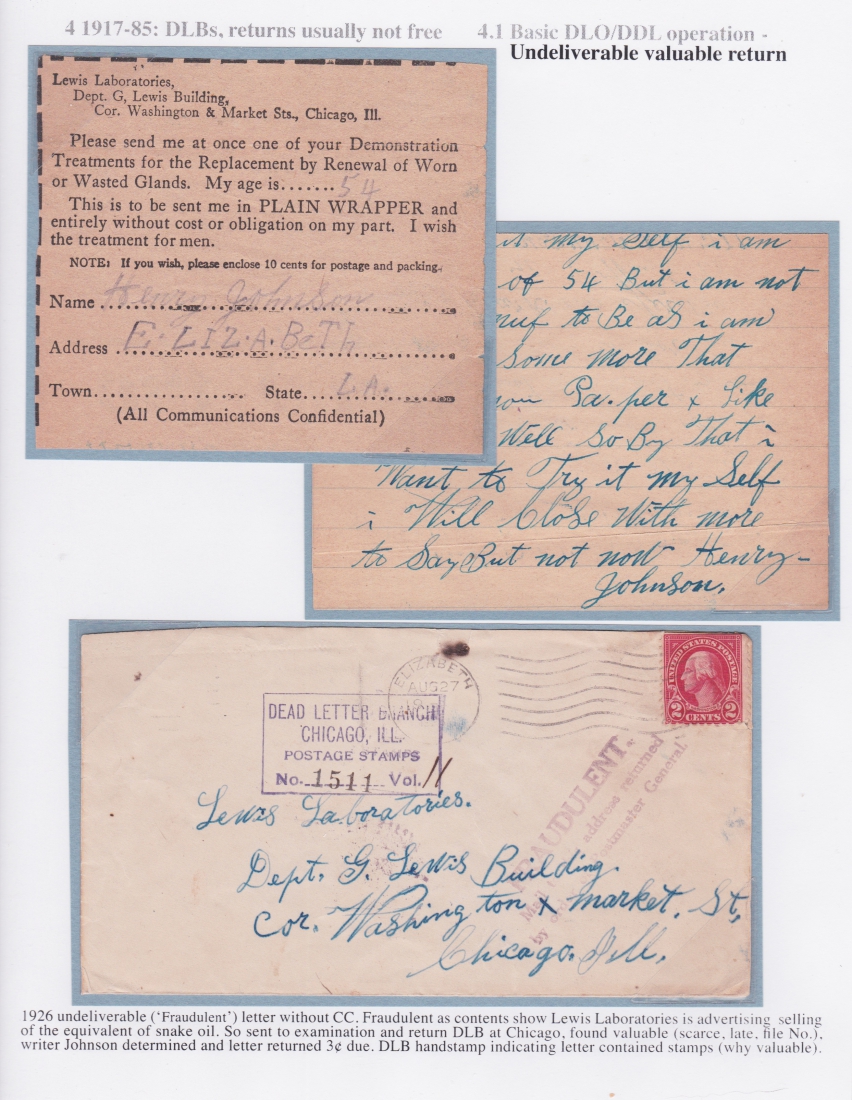 4 1917-85: DLBs, returns usually not free
4.1 Basic DLO/DDL operation -
Undeliverable valuable return
Lewis Laboratories,
Dept. G, Lewis Building,
Cor. Washington & Market Sts., Chicago, Ill.
Please send me at once one of your Demonstration
Treatments for the Replacement by Renewal of Worn
or Wasted Glands. My age is.......54
This is to be sent me in PLAIN WRAPPER and
entirely without cost or obligation on my part. I wish
the treatment for men.
NOTE: If you wish, please enclose 10 cents for postage and packing.
Name Henry Johnson
Address E.LIZ.A.BeTh
Town.................. State LA.
(All Communications Confidential)
it my Self i am
of 54 But i am not
nuf to Be as i am
Some more That
Pa.per x Like
Well So By That i
Want to Try it my Self
i Will Close With more
to Say But not now Henry-
Johnson.
ELIZABETH
AUG 27
UNITED STATES POSTAGE
2 CENTS 2
DEAD LETTER BRANCH
CHICAGO, ILL.
POSTAGE STAMPS
No. 1511 Vol. 11
FRAUDULENT
Mail address returned
by Postmaster General.
Lewis Laboratories.
Dept. G. Lewis Building.
Cor. Washing ton x market. St,
Chicago. Ill.
1926 undeliverable ('Fraudulent') letter without CC. Fraudulent as contents show Lewis Laboratories is advertising selling
of the equivalent of snake oil. So sent to examination and return DLB at Chicago, found valuable (scarce, late, file No.),
writer Johnson determined and letter returned 3¢ due. DLB handstamp indicating letter contained stamps (why valuable).